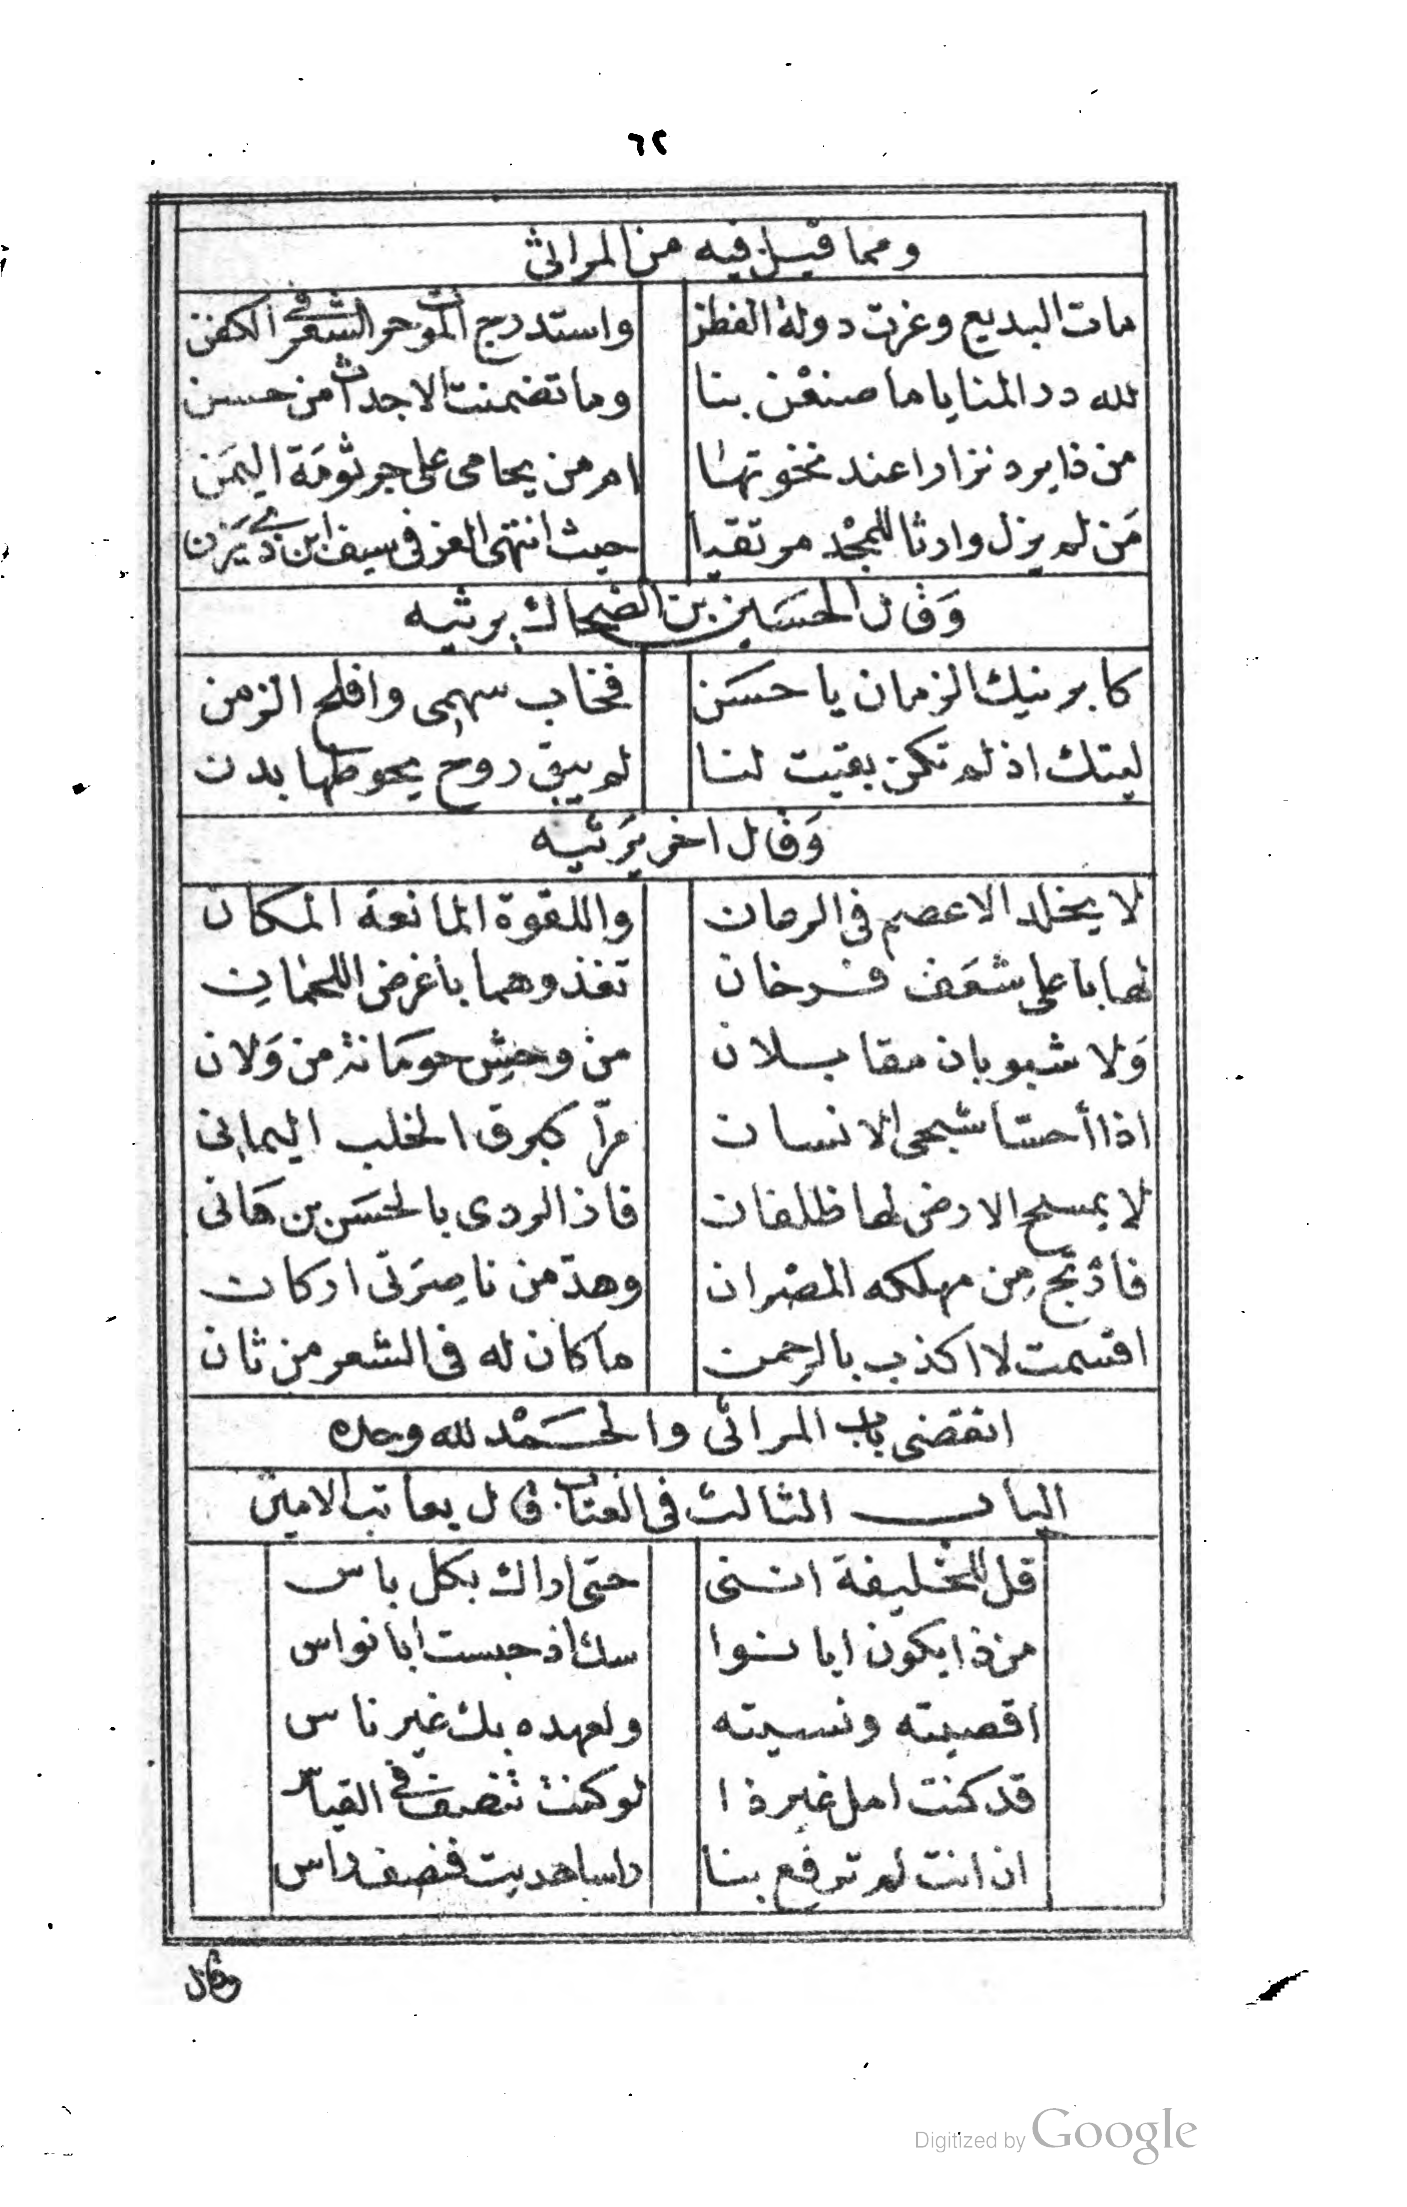 ٦٢
ومما قيل فيه من المراثى
مات البديع وغزت دولة الفطن واستدرج الموت حر الشعر في الكفن
لله در المنايا ما صنعن بنا وما تضمنت الاجداث من حسن
من ذا يرد نزارا عند نخوتها ام من يحامى على جرثومة اليمن
من لم يزل وارثا للمجد مرتقيا حيث انتهى العز فى سيف ابن ذي يزن
وقال الحسين بن الضحاك يرثيه
كابرنيك الزمان يا حسن فخاب سهمى وافلح الزمن
ليتك اذ لم تكن بقيت لنا لم يبق روح يحوطها بدن
وقال اخر يرثيه
لا يخلد الاعصم فى الزمان واللقوة المانعة المكان
لها باعلى شعف فرخان تغذوهما باغرض اللخمان
ولا شبوبان مقابلان من وحش حومانة من ولان
اذا أحستا شجى الانسان مرّا كبرق الخلب اليمانى
لا يمسح الارض لها ظلفان فاز الردى بالحسن بن هانى
فارتج من مهلكه المصران وهدّ من ناصرتى اركان
اقسمت لا اكذب بالرحمن ما كان له فى الشعر من ثان
انقضى باب المراثى والحمد لله وحده
الباب الثالث فى العتاب قال يعاتب الامين
قل للخليفة اننى حتى اراك بكل باس
من ذا يكون ابا نوا سك اذ حبست ابا نواس
اقصيته ونسيته ولعهده بك غير ناس
قد كنت امل غير ذا لو كنت تنصف في القياس
ان انت لم ترفع بنا راسا هديت فنصف راس
وقال
Digitized by Google